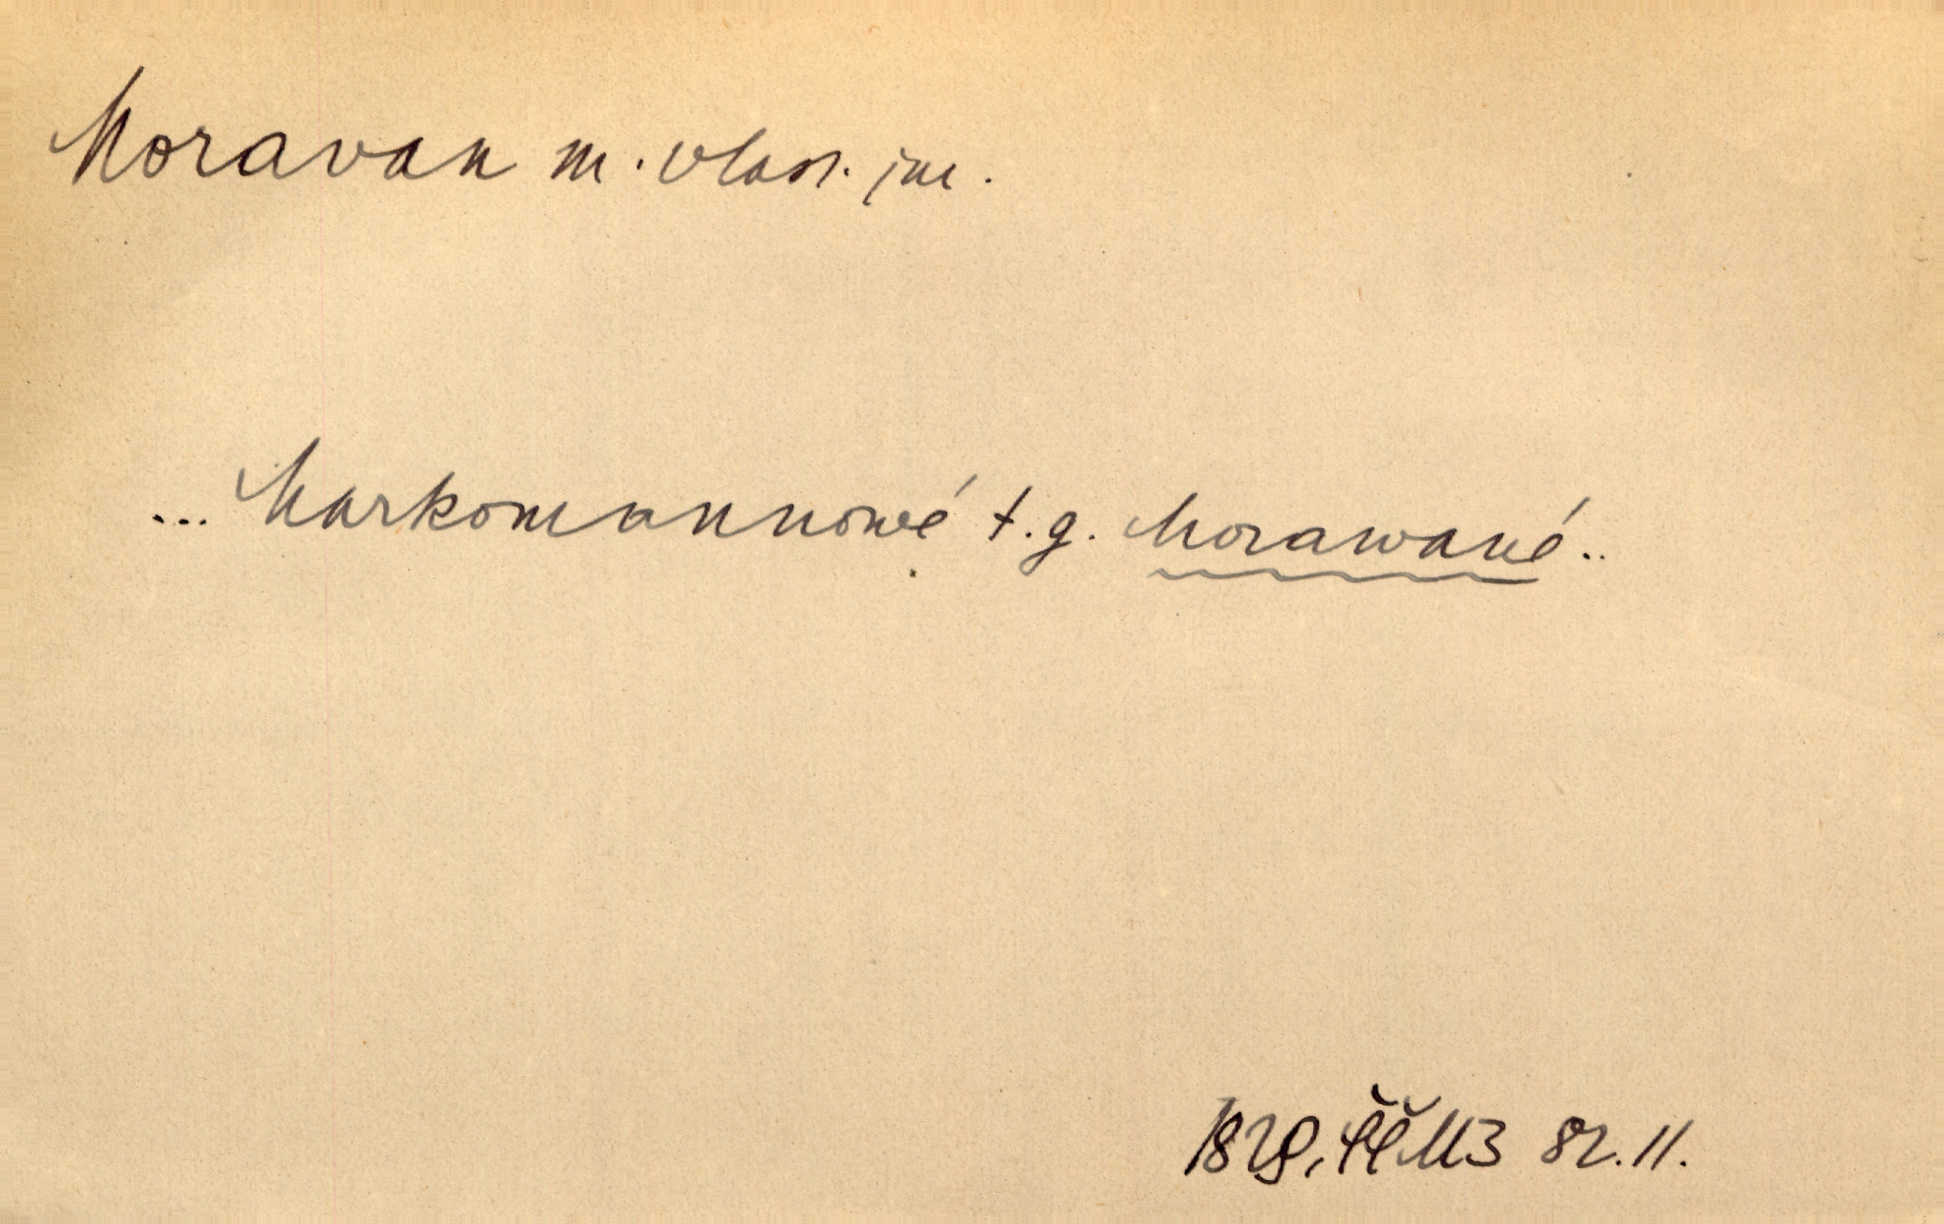 Moravan m. vlast. jm.
... Markomannowé t.g. Morawané..
1829, ČČM3 82.11.